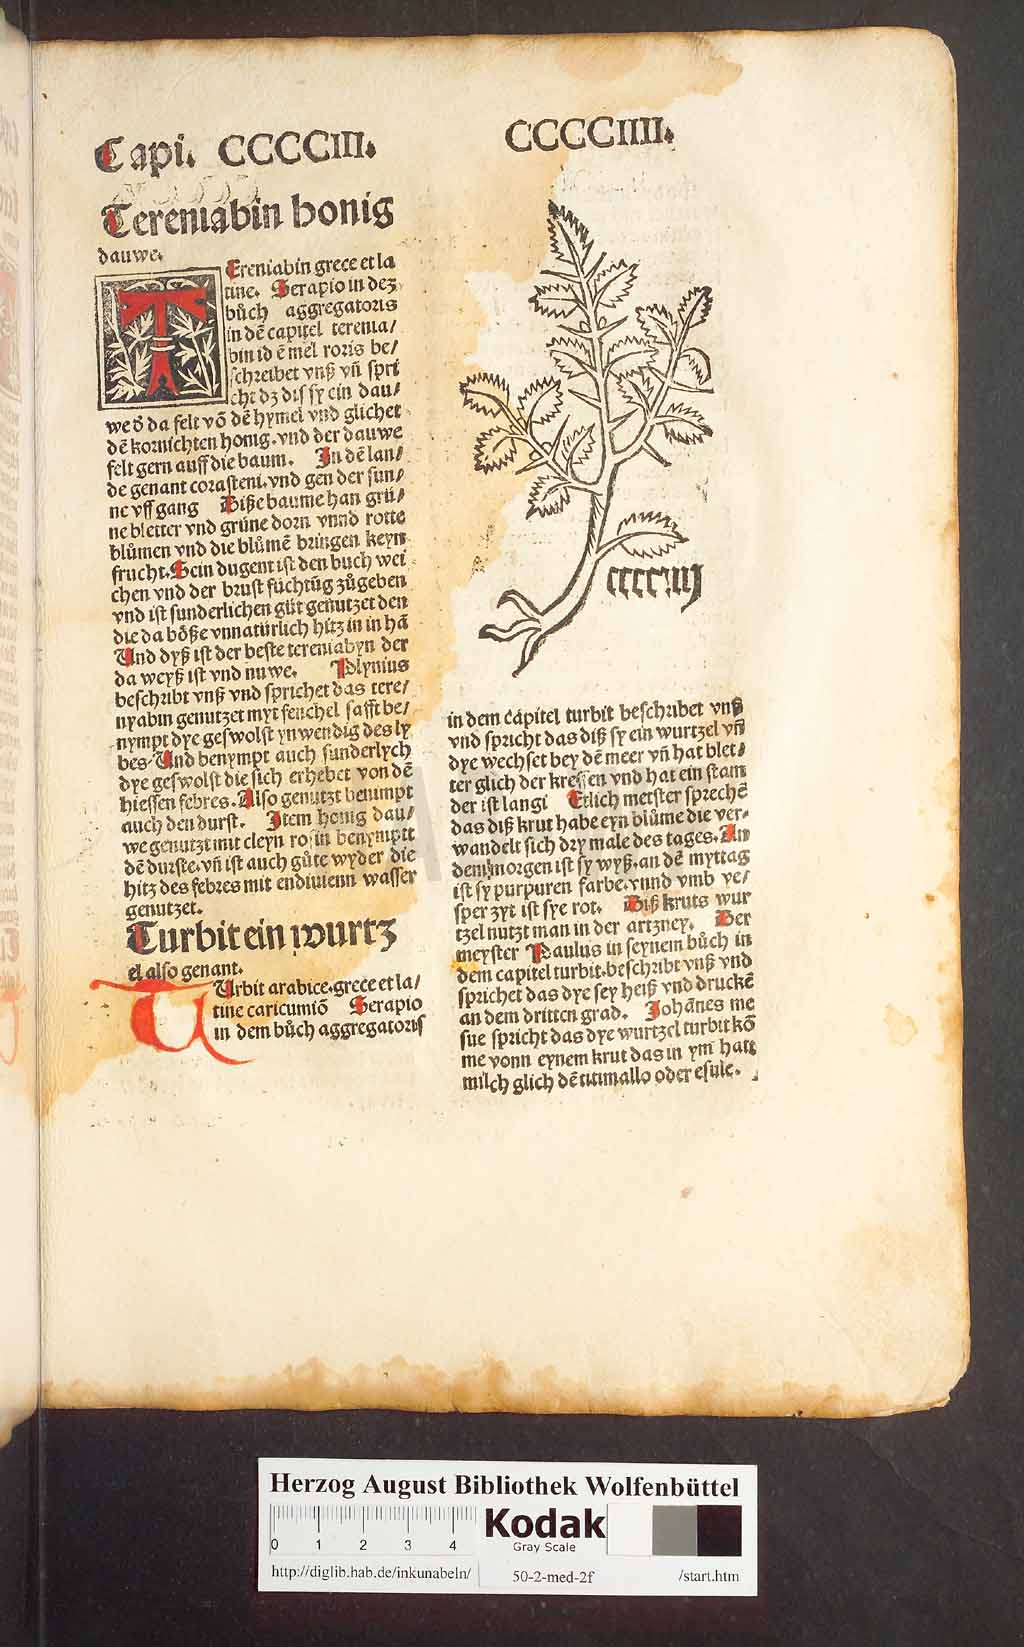 Capi. CCCCIII.
Tereniabin honig
dauwe.
TEreniabin grece et la
tine. Serapio in dez
bůch aggregatoris
in dē capitel terenia/
bin id ē mel roris be/
schreibet vnß vñ spri
cht dz dis sy ein dau/
we d̄ da felt vō dē hymel vnd glichet
dē kornichten honig. vnd der dauwe
felt gern auff die baum. In dē lan/
de genant corasteni. vnd gen der sun/
ne vff gang Diße baume han grü/
ne bletter vnd grüne dorn vnnd rotte
blůmen vnd die blůmē bringen keyn
frucht. Sein dugent ist den buch wei
chen vnd der brust füchtūg zůgeben
vnd ist sunderlichen gůt genutzet den
die da bőße vnnatürlich hitz in in hā
Vnd dyß ist der beste tereniabyn der
da weyß ist vnd nuwe. Plynius
beschribt vnß vnd sprichet das tere/
nyabin genutzet myt fenchel safft be/
nympt dye geswolst ynwendig des ly
bes. Vnd benympt auch sunderlych
dye geswolst die sich erhebet von dē
hiessen febres. Also genutzt benimpt
auch den durst. Item honig dau/
we genutzt mit cleyn rosin benymptt
dē durste. vñ ist auch gůte wyder die
hitz des febres mit endiuienn wasser
genutzet.
Turbit ein wurtz
el also genant.
TUrbit arabice. grece et la/
tine caricumiō Serapio
in dem bůch aggregatoris
CCCCIIII.
cccciiij
in dem capitel turbit beschribet vnß
vnd spricht das diß sy ein wurtzel vñ
dye wechset bey dē meer vñ hat blet/
ter glich der kressen vnd hat ein stam
der ist langt Etlich meister sprechē
das diß krut habe eyn blůme die ver/
wandelt sich dry male des tages. An
dem morgen ist sy wyß. an dē myttag
ist sy purpuren farbe. vnnd vmb ve/
sper zyt ist sye rot. Diß kruts wur
tzel nutzt man in der artzney. Der
meyster Paulus in seynem bůch in
dem capitel turbit. beschribt vnß vnd
sprichet das dye sey heiß vnd druckē
an dem dritten grad. Johānes me
sue spricht das dye wurtzel turbit kō
me vonn eynem krut das in ym hatt
milch glich dē titimallo oder esule.
Herzog August Bibliothek Wolfenbüttel
0 1 2 3 4
Kodak
Gray Scale
http://diglib.hab.de/inkunabeln/ 50-2-med-2f /start.htm